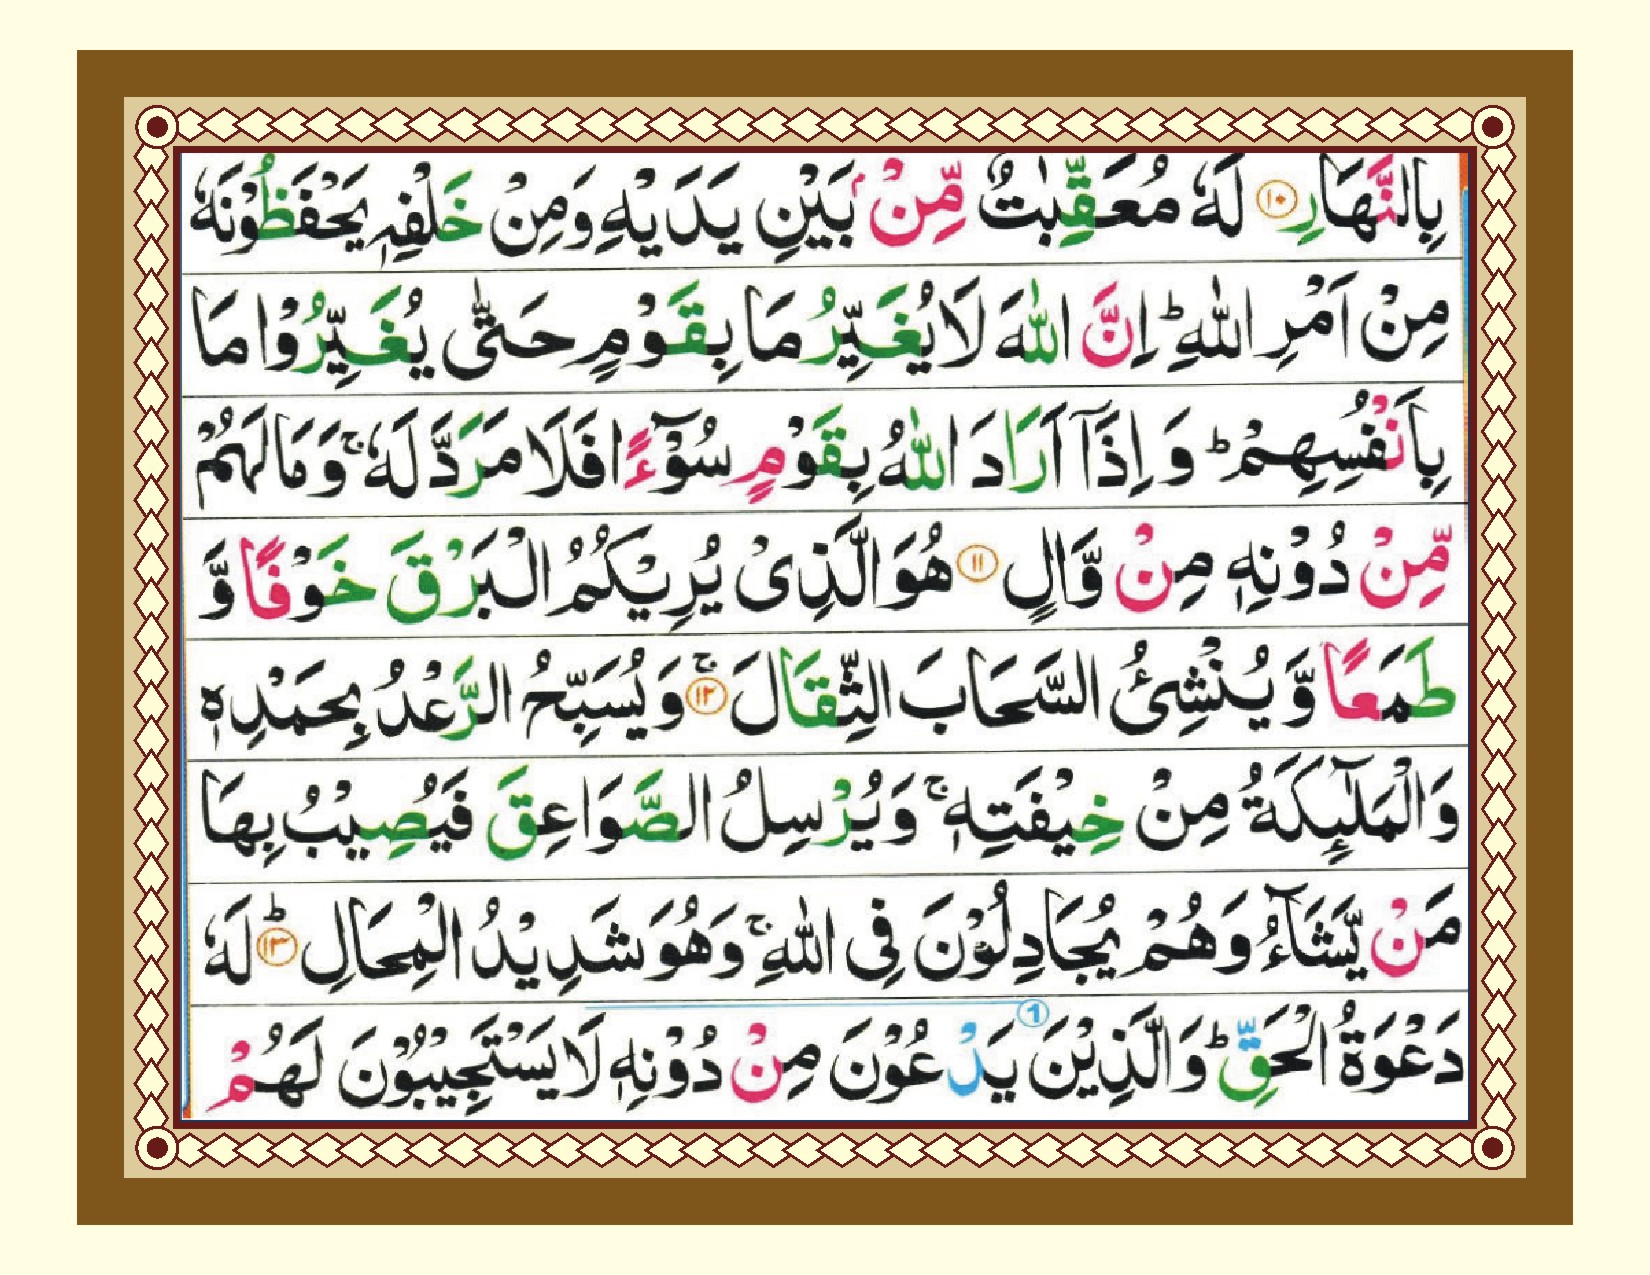 بِالنَّهَارِ ﴿۱۰﴾ لَهٗ مُعَقِّبٰتٌ مِّنْۢ بَيْنِ يَدَيْهِ وَمِنْ خَلْفِهٖ يَحْفَظُوْنَهٗ
مِنْ اَمْرِ اللّٰهِ ؕ اِنَّ اللّٰهَ لَا يُغَيِّرُ مَا بِقَوْمٍ حَتّٰى يُغَيِّرُوْا مَا
بِاَنْفُسِهِمْ ؕ وَاِذَاۤ اَرَادَ اللّٰهُ بِقَوْمٍ سُوْٓءًا فَلَا مَرَدَّ لَهٗ ۚ وَمَا لَهُمْ
مِّنْ دُوْنِهٖ مِنْ وَّالٍ ﴿۱۱﴾ هُوَ الَّذِىْ يُرِيْكُمُ الْبَرْقَ خَوْفًا وَّ
طَمَعًا وَّيُنْشِئُ السَّحَابَ الثِّقَالَ ۚ﴿۱۲﴾ وَيُسَبِّحُ الرَّعْدُ بِحَمْدِهٖ
وَالْمَلٰٓئِكَةُ مِنْ خِيْفَتِهٖ ۚ وَيُرْسِلُ الصَّوَاعِقَ فَيُصِيْبُ بِهَا
مَنْ يَّشَآءُ وَهُمْ يُجَادِلُوْنَ فِى اللّٰهِ ۚ وَهُوَ شَدِيْدُ الْمِحَالِ ؕ﴿۱۳﴾ لَهٗ
دَعْوَةُ الْحَقِّ ؕ وَالَّذِيْنَ يَدْعُوْنَ مِنْ دُوْنِهٖ لَا يَسْتَجِيْبُوْنَ لَهُمْ